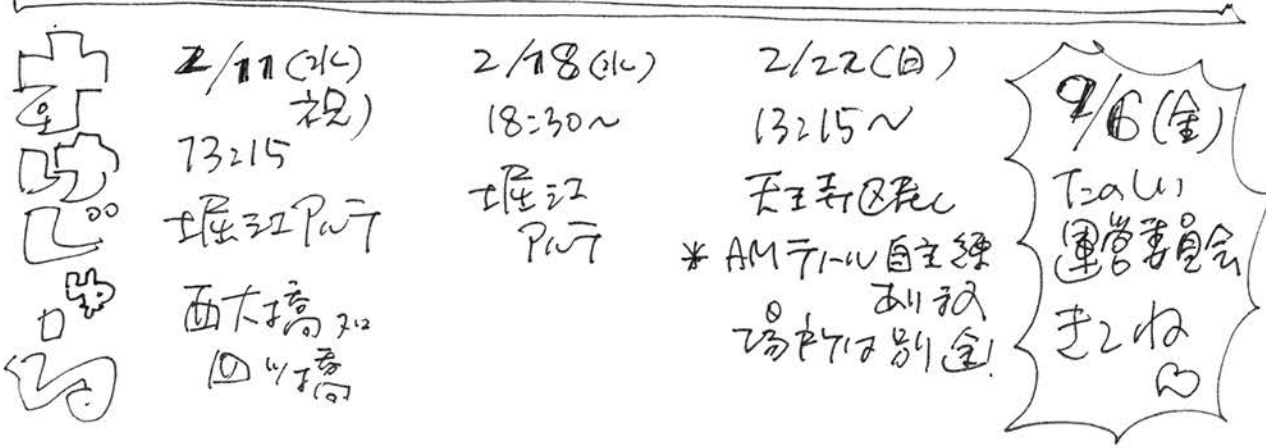 2/11(水
祝)
13:15
堀江アルテ
西大橋又は
四ツ橋
2/18(水)
18:30〜
堀江
アルテ
2/22(日)
13:15〜
天王寺区民C
* AMテナール自主練
あり
場所は別途!
2/6(金)
たのしい
運営委員会
きてね